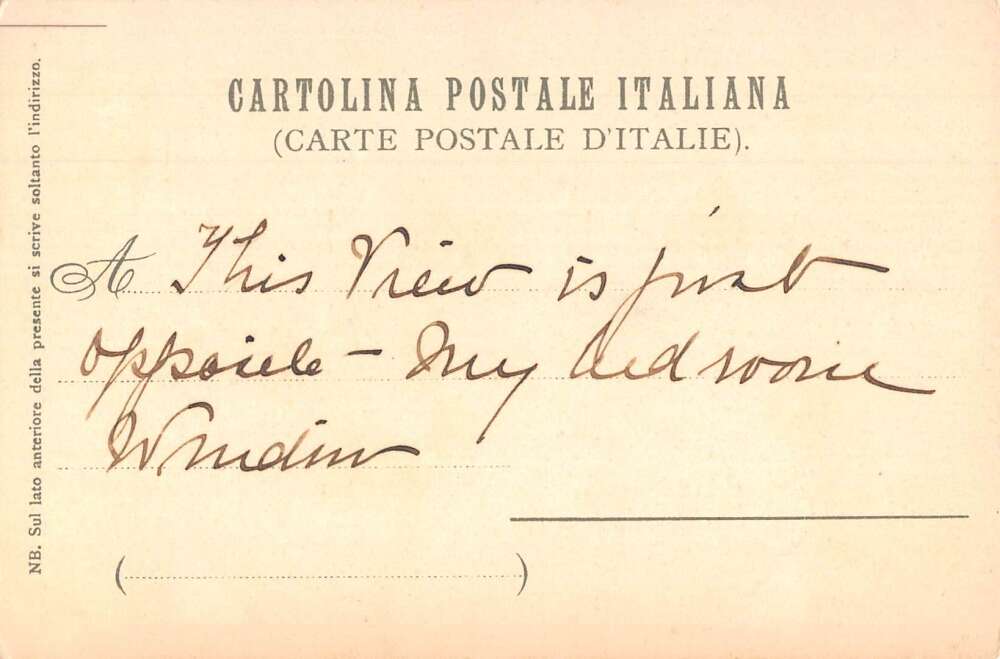 CARTOLINA POSTALE ITALIANA
(CARTE POSTALE D'ITALIE).
A This View is just
opposite - My bedroom
Window
NB. Sul lato anteriore della presente si scrive soltanto l'indirizzo.